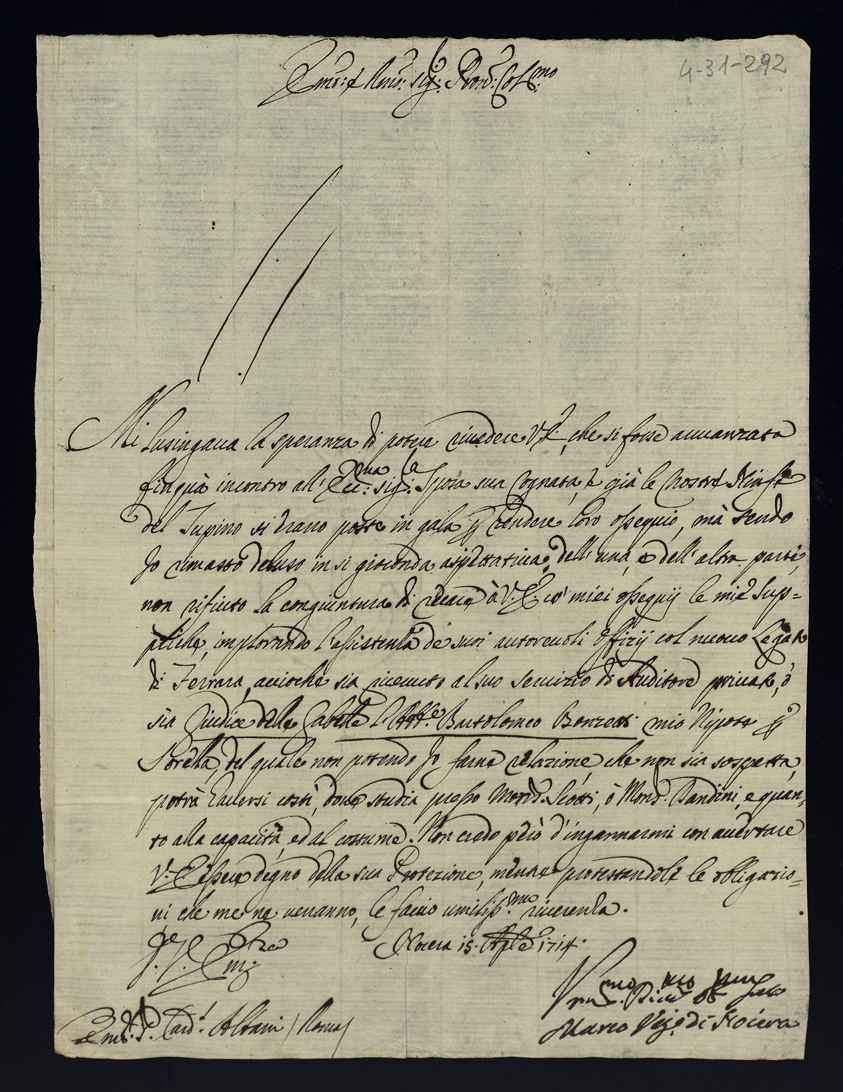 4-31-292
Em̃o: e Rm̃o: Sig:r Pron: Col:mo
Mi lusingaua la speranza di potere riuedere V.E., che si fosse auuanzata
fin quà incontro all' Ecc:ma Sig:ra Sposa sua Cognata, e già le nostre Ninfe
del Tupino si erano poste in gala p rendere loro ossequio, mà sendo
Io rimasto deluso in sì gioconda aspettatiua, e dell' una, e dell' altra parte,
non rifiuto la congiuntura di recare à V.E. co' miei ossequij le mie Sup=
pliche, implorando l'assistenza de suoi autoreuoli Offizij col nuouo Legato
di Ferrara, accioche sia riceuuto al suo seruizio di Auditore priuato, ò
sia Giudice delle Gabelle l'Abb:e Bartolomeo Bonzetti mio Nipote p
Sorella, del quale non potendo Io farne relazione, che non sia sospetta,
potrà hauersi costì, doue studia presso Mons:r Scotti, ò Mons:r Bandini, e quan=
to alla capacità, ed al costume. Non credo però d'ingannarmi con accertare
V.E. esser degno della sua Protezione, mentre protestandole le obligazio=
ni che me ne uerranno, le faccio umiliss:mo riuerenza.
Di V. Em:
Nocera 15. Aple 1714.
Em̃o: S. Card: Albani / Roma /
Marco Vesc: di Nocera